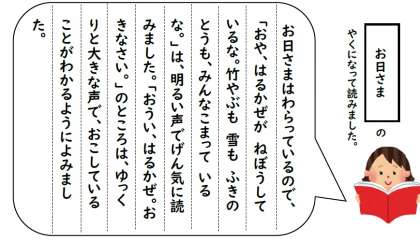 お日さま の
やくになって読みました。
お日さまはわらっているので、
「おや、はるかぜが ねぼうして
いるな。竹やぶも 雪も ふきの
とうも、みんなこまって いる
な。」は、明るい声でげん気に読
みました。「おうい、はるかぜ。お
きなさい。」のところは、ゆっく
りと大きな声で、おこしている
ことがわかるようによみまし
た。